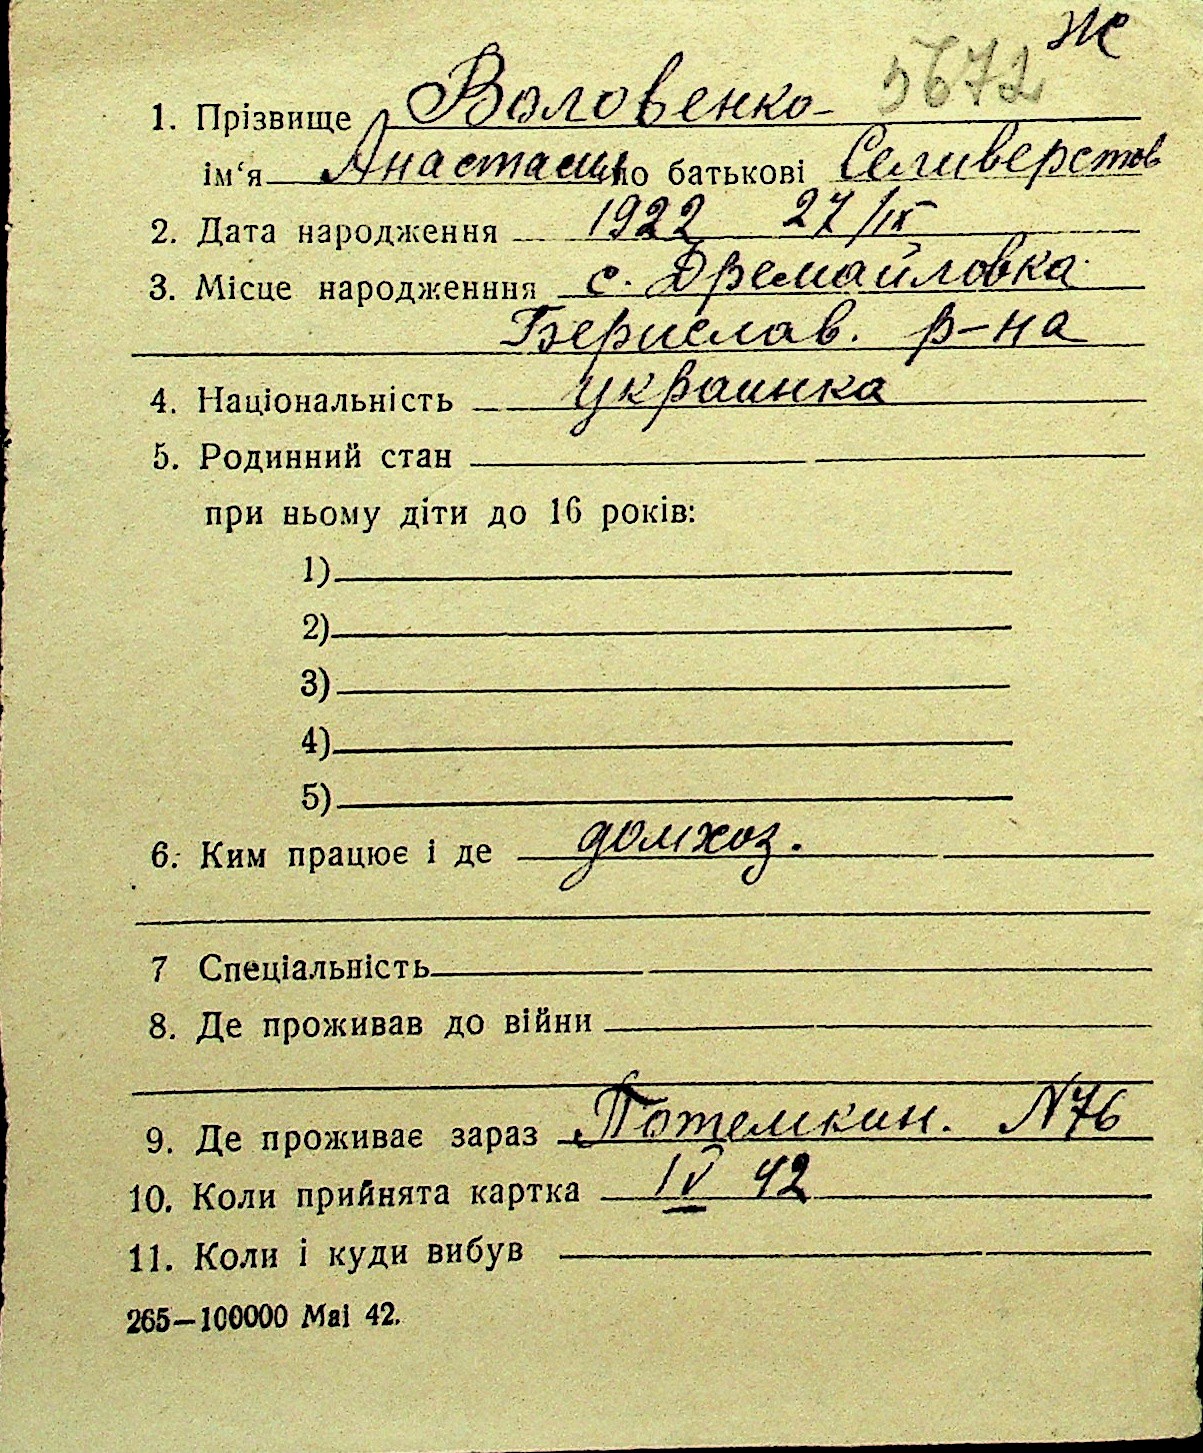 Ж
5672
1. Прізвище Воловенко
ім‘я Анастасия по батькові Селиверстов
2. Дата народження 1922 27/IX
3. Місце народженння с. Дремайловка
Берислав. р-на
4. Національність украинка
5. Родинний стан
при ньому діти до 16 років:
1)
2)
3)
4)
5)
6. Ким працює і де домхоз.
7 Спеціальність
8. Де проживав до війни
9. Де проживає зараз Потемкин. N76
10. Коли прийнята картка IV 42
11. Коли і куди вибув
265—100000 Mai 42.